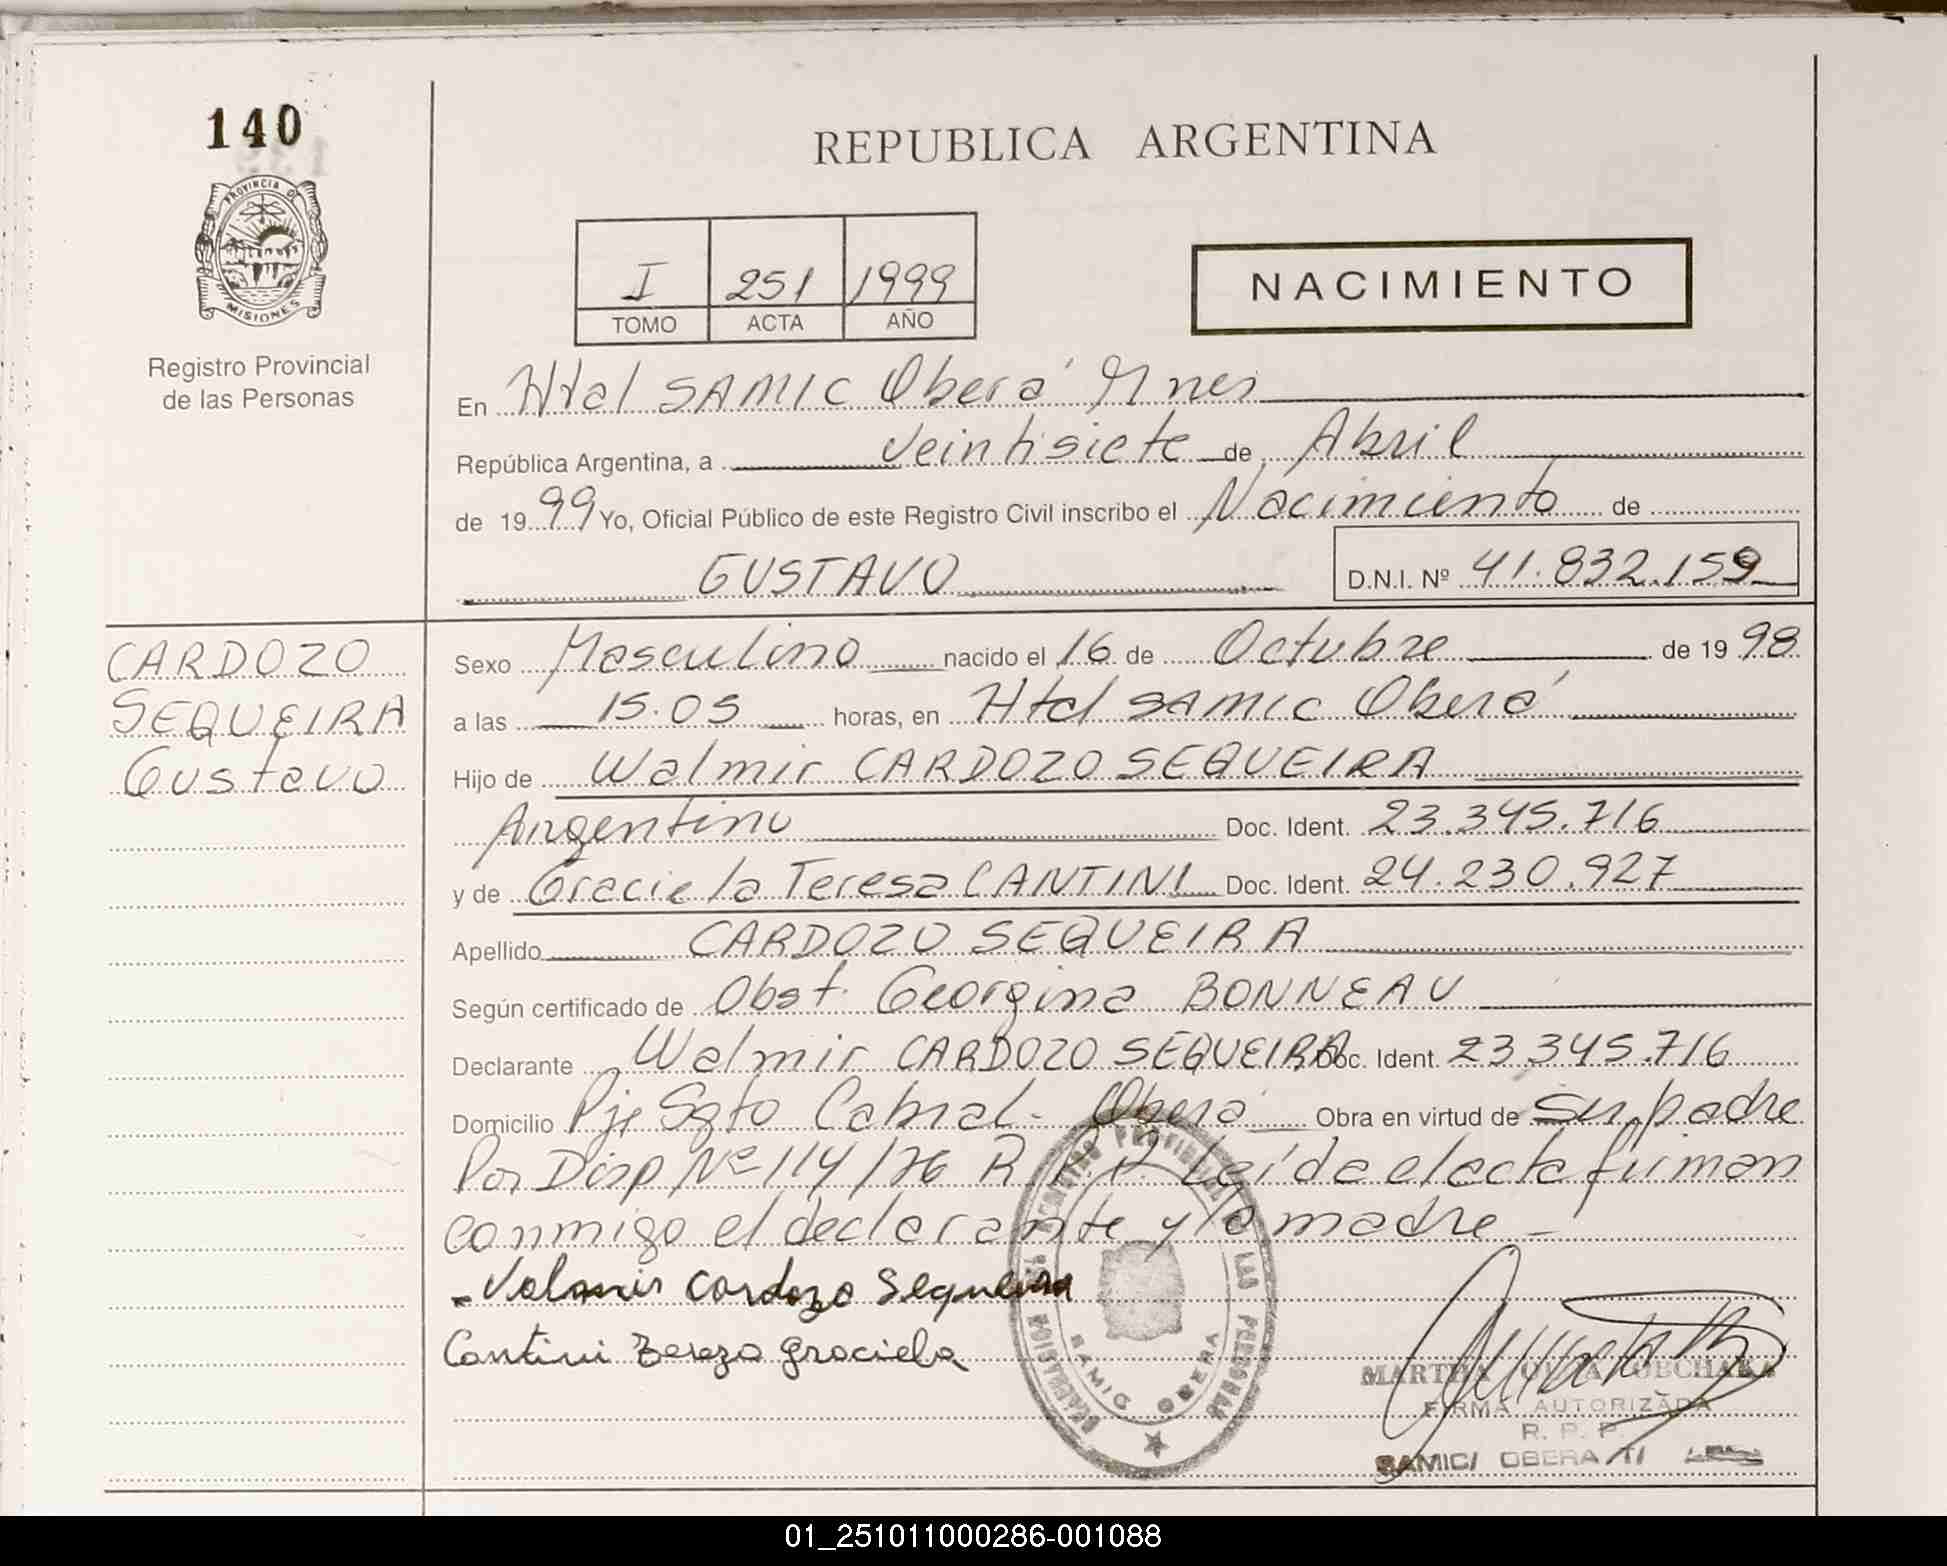 140
REPUBLICA ARGENTINA
PROVINCIA DE
MISIONES
Registro Provincial
de las Personas
I 251 1999
TOMO ACTA AÑO
NACIMIENTO
En Htal SAMIC Oberá Mnes
República Argentina, a veintisiete de Abril
de 1999 Yo, Oficial Público de este Registro Civil inscribo el Nacimiento de
GUSTAVO D.N.I. Nº 41.832.159
CARDOZO
SEQUEIRA
Gustavo
Sexo Masculino nacido el 16 de Octubre de 1998
a las 15.05 horas, en Htal SAMIC Oberá
Hijo de Walmir CARDOZO SEQUEIRA
Argentino Doc. Ident. 23.345.716
y de Graciela Teresa CANTINI Doc. Ident. 24.230.927
Apellido CARDOZO SEQUEIRA
Según certificado de Obst. Georgina BONNEAU
Declarante Walmir CARDOZO SEQUEIRA Doc. Ident. 23.345.716
Domicilio Pje Sgto Cabral - Oberá Obra en virtud de ser padre
Por Disp Nº 114/76 R.P.P. Leída el acta firman
conmigo el declarante y la madre -
Cardozo Sequeira
Cantini Graciela
REGISTRO PROVINCIAL DE LAS PERSONAS
SAMIC OBERA
MARTHA
FIRMA AUTORIZADA
R. P. P.
SAMIC/ OBERA
01_251011000286-001088